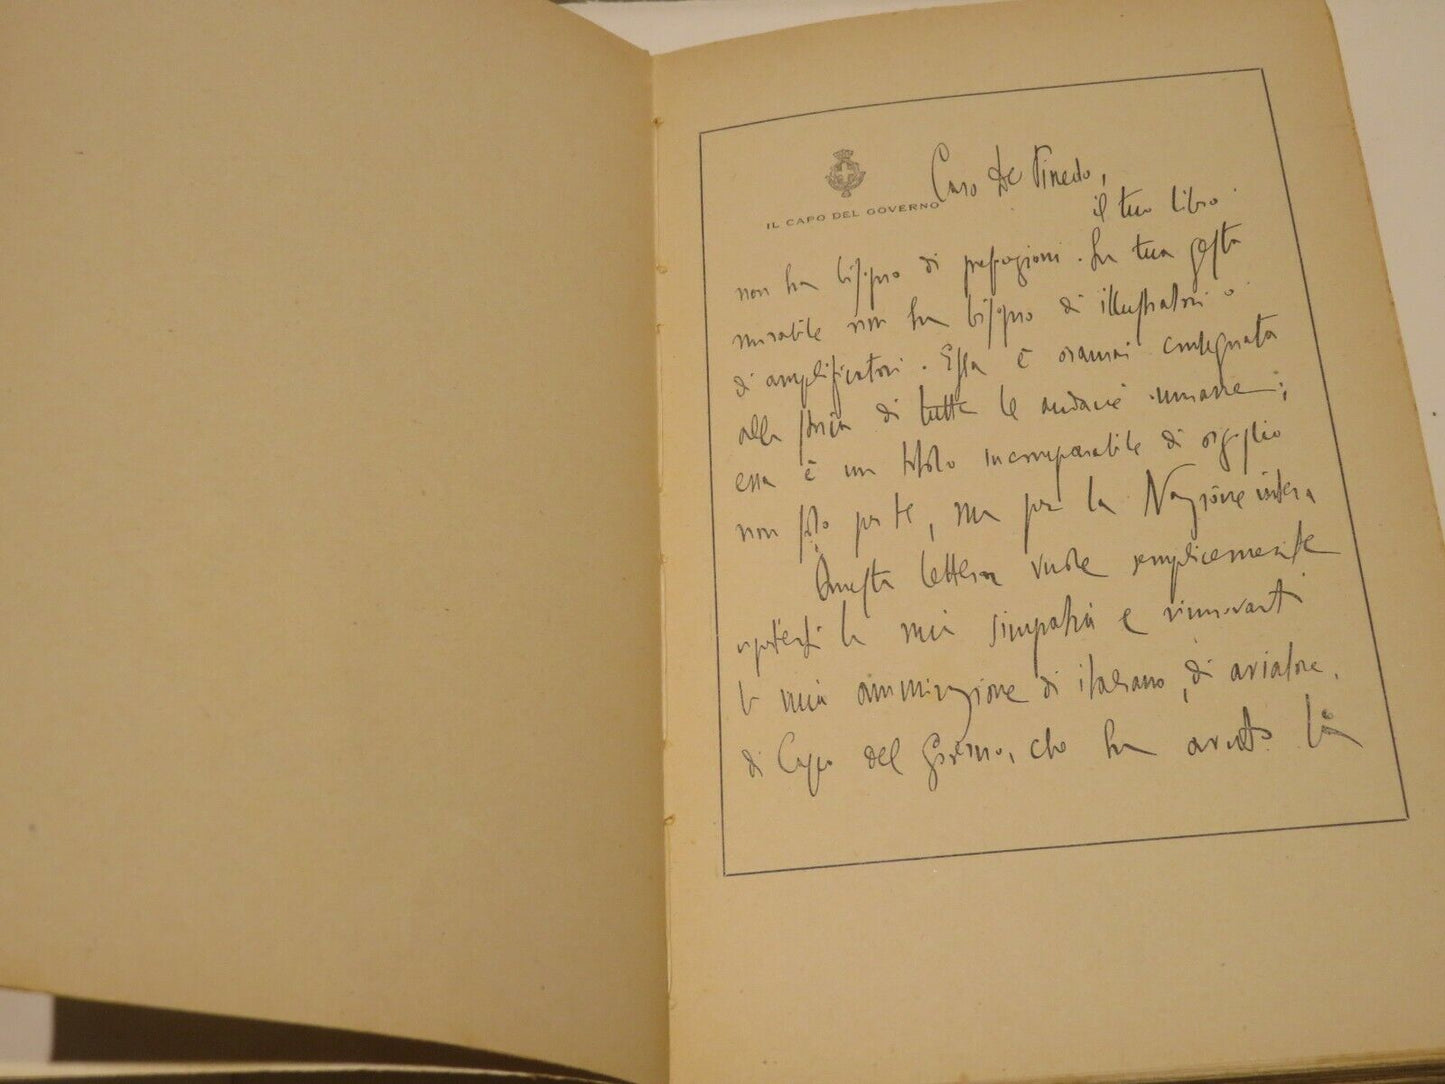 IL CAPO DEL GOVERNO
Caro De Pinedo,
il tuo libro
non ha bisogno di prefazioni. La tua gesta
mirabile non ha bisogno di illustratori o
di amplificatori. Essa è oramai consegnata
alla storia di tutte le audacie umane;
essa è un titolo incomparabile di orgoglio
non solo per te, ma per la Nazione intera
Questa lettera vuole semplicemente
la mia simpatia e rinnovarti
la mia ammirazione di italiano, di aviatore,
di Capo del Governo, che ha avuto